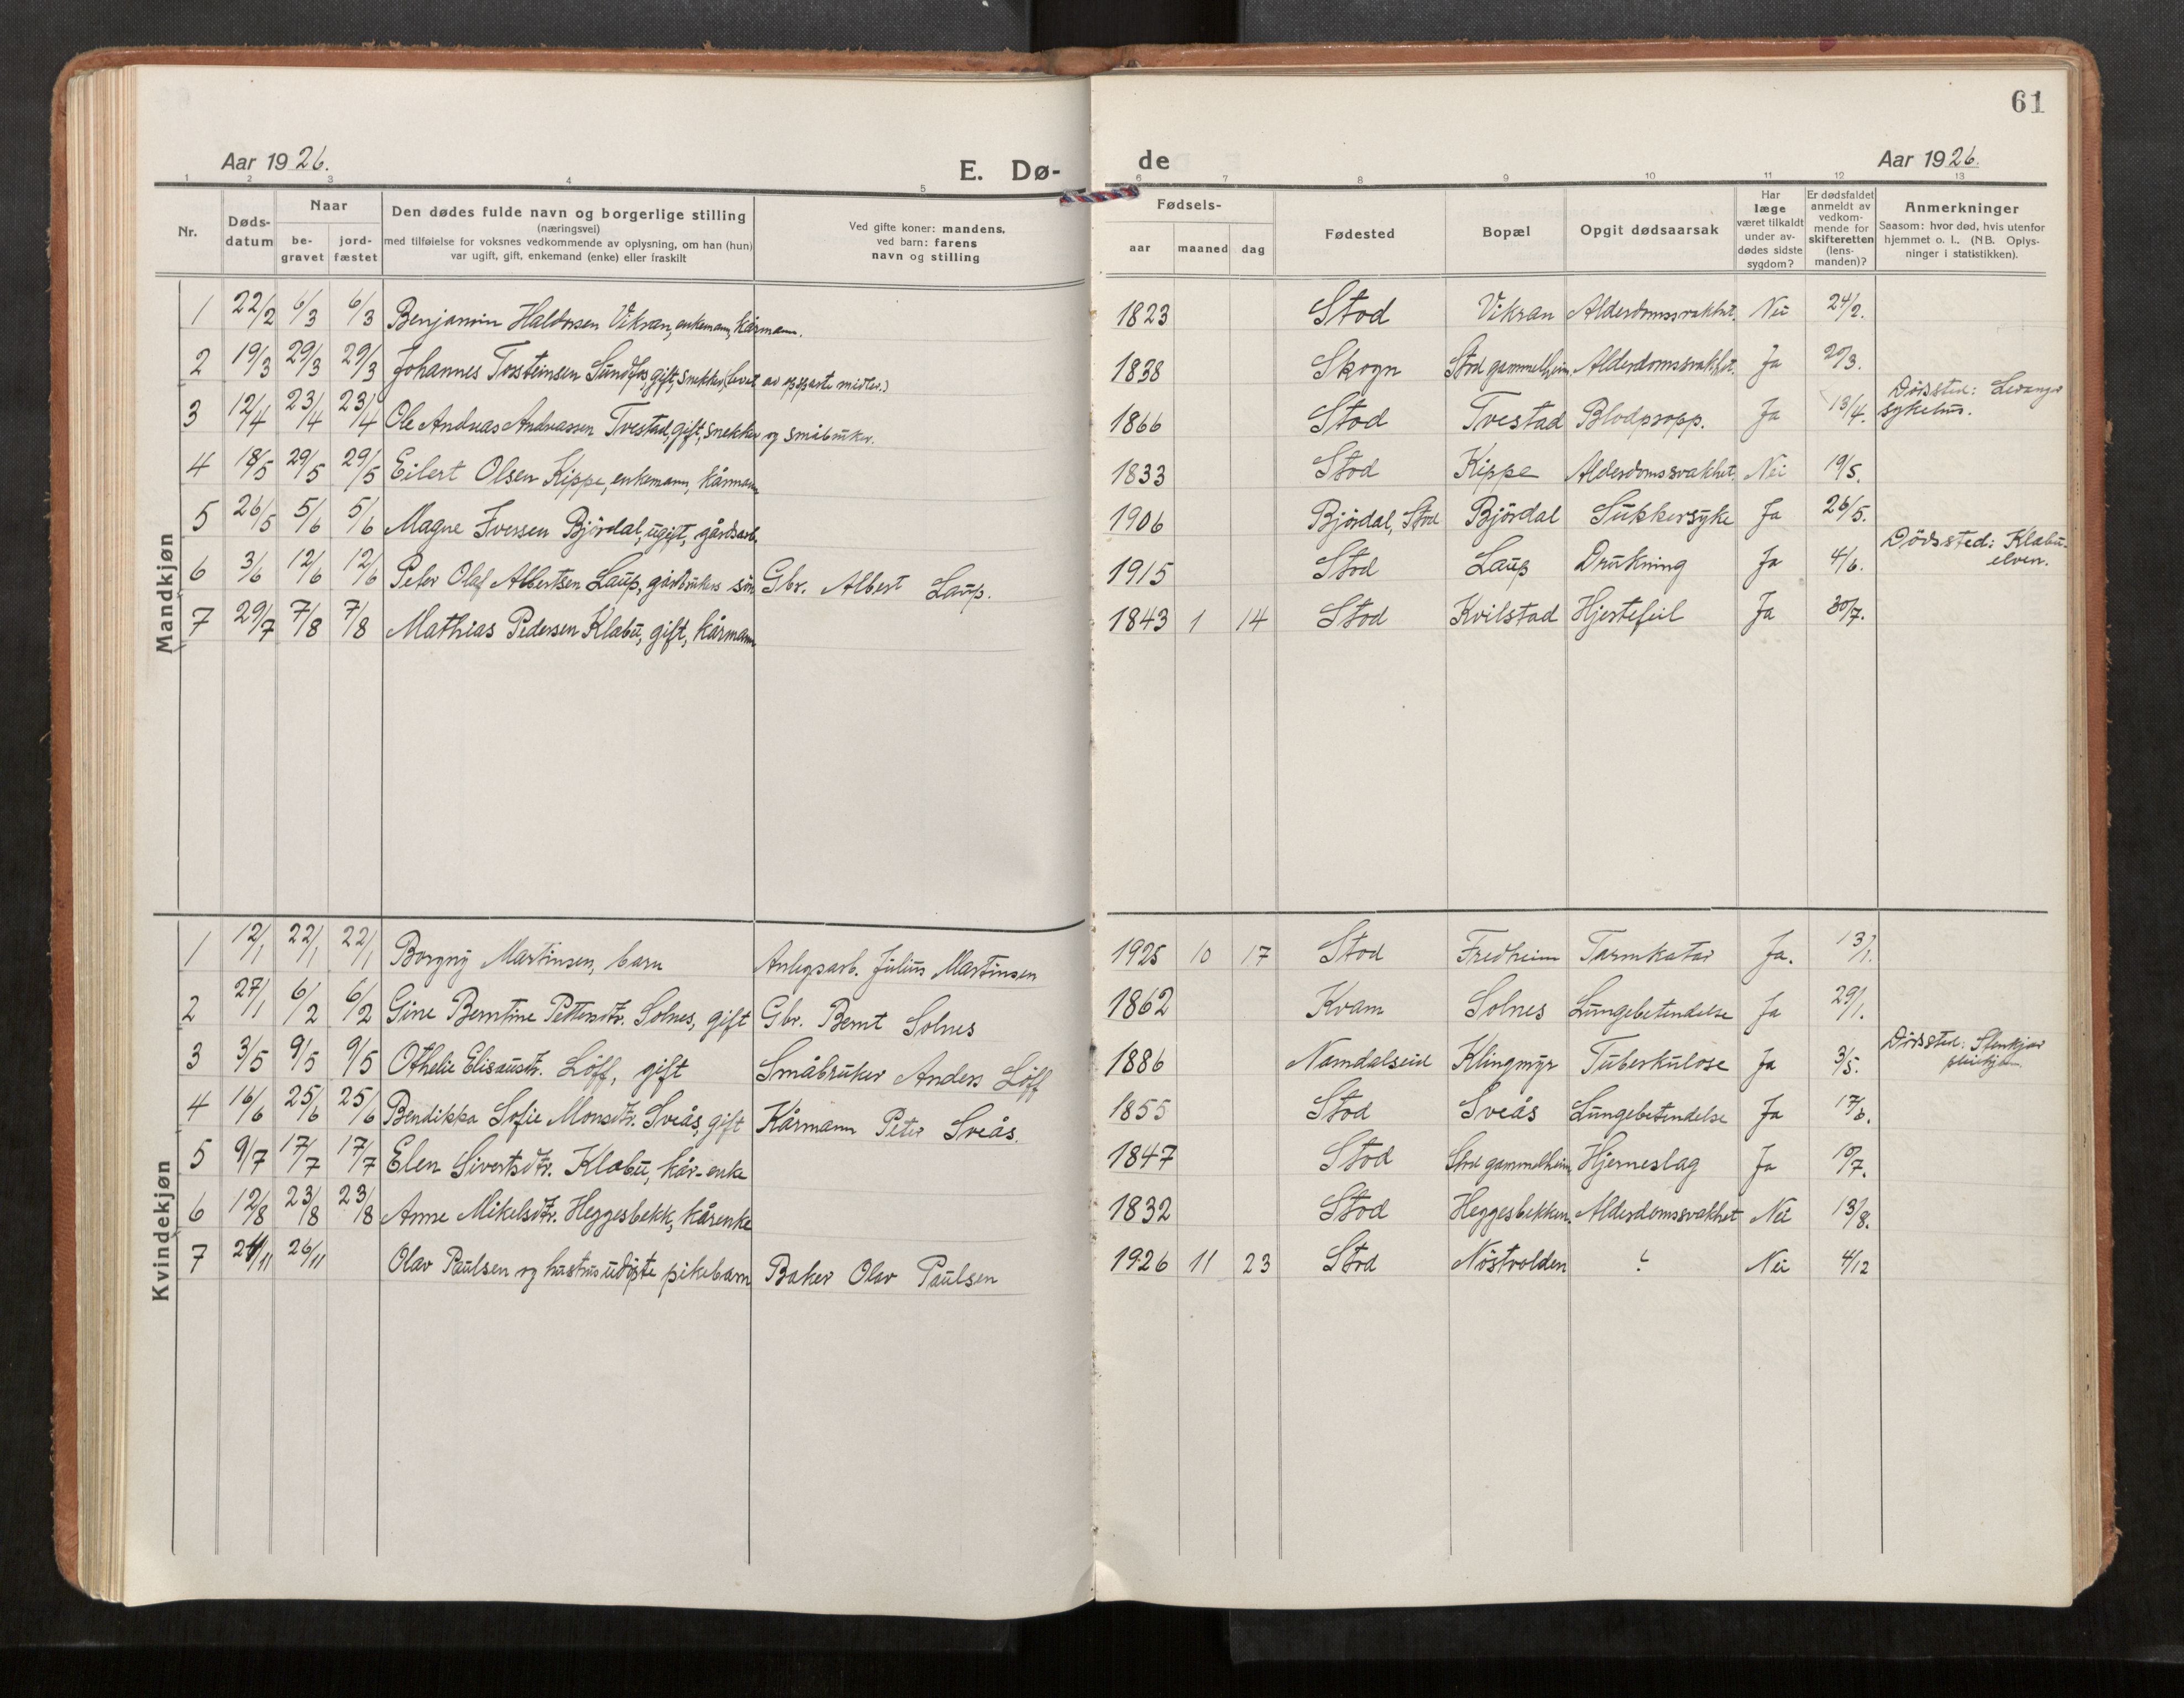 61
Aar 1926.
E. Dø-
de
Aar 1926.
1 2 3 4 5 6 7 8 9 10 11 12 13
Nr.
Døds-
datum
Naar
be-
gravet
jord-
fæstet
Den dødes fulde navn og borgerlige stilling
(næringsvei)
med tilføielse for voksnes vedkommende av oplysning, om han (hun)
var ugift, gift, enkemand (enke) eller fraskilt
Ved gifte koner: mandens,
ved barn: farens
navn og stilling
Fødsels-
aar maaned dag
Fødested
Bopæl
Opgit dødsaarsak
Har
læge
været tilkaldt
under av-
dødes sidste
sygdom?
Er dødsfaldet
anmeldt av
vedkom-
mende for
skifteretten
(lens-
manden)?
Anmerkninger
Saasom: hvor død, hvis utenfor
hjemmet o. l.. (NB. Oplys-
ninger i statistikken).
Mandkjøn
1 22/2 6/3 6/3 Benjamin Haldorsen Vikran, enkemann, kårmann. 1823 Stod Vikran Alderdomssvakhet. Nei 24/2.
2 19/3 29/3 29/3 Johannes Torsteinsen Sundfos, gift, snekker (levet av opsparte midler.) 1838 Skogn Stod gammelheim. Alderdomssvakhet. Ja 20/3.
3 12/4 23/4 23/4 Ole Andreas Andreassen Tvestad, gift, snekker og småbruker. 1866 Stod Tvestad Blodpropp. Ja 13/4. Dödssted: Levanger
sykehus.
4 18/5 29/5 29/5 Eilert Olsen Kippe, enkemann, kårmann 1833 Stod Kippe Alderdomssvakhet. Nei 19/5.
5 26/5 5/6 5/6 Magne Iversen Björdal, ugift, gårdsarb. 1906 Björdal, Stod Björdal Sukkersyke Ja 26/5.
6 3/6 12/6 12/6 Peter Olaf Albertsen Laup, gårdbrukers sön Gbr. Albert Laup. 1915 Stod Laup Drukning Ja 4/6. Dödssted: Klabu-
elven.
7 29/7 7/8 7/8 Mathias Pedersen Klabu, gift, kårmann 1843 1 14 Stod Kvilstad Hjertefeil Ja 30/7.
Kvindekjøn
1 12/1 22/1 22/1 Borgny Martinsen, barn Anlegsarb. Julius Martinsen 1925 10 17 Stod Fredheim Tarmkatar Ja. 13/1.
2 27/1 6/2 6/2 Gine Berntine Pettersdtr. Solnes, gift Gbr. Bernt Solnes 1862 Kvam Solnes Lungebetendelse Ja 29/1.
3 3/5 9/5 9/5 Othelie Elisausdtr. Löff, gift Småbruker Anders Löff 1886 Namdalseid Klingmyr Tuberkulose Ja 3/5. Dödssted: Stenkjær
pleiehjem
4 16/6 25/6 25/6 Bendikka Sofie Monsdtr. Sveås, gift Kårmann Peter Sveås. 1855 Stod Sveås Lungebetendelse Ja 17/6.
5 9/7 17/7 17/7 Elen Sivertsdtr. Klabu, kår-enke 1847 Stod Stod gammelheim. Hjerneslag Ja 10/7.
6 12/8 23/8 23/8 Anne Mikelsdtr. Heggesbekk, kårenke 1832 Stod Heggesbekken. Alderdomssvakhet Nei 13/8.
7 24/11 26/11 Olav Paulsen og hustrus udöpte pikebarn Baker Olav Paulsen 1926 11 23 Stod Nöstvolden ? Nei 4/12